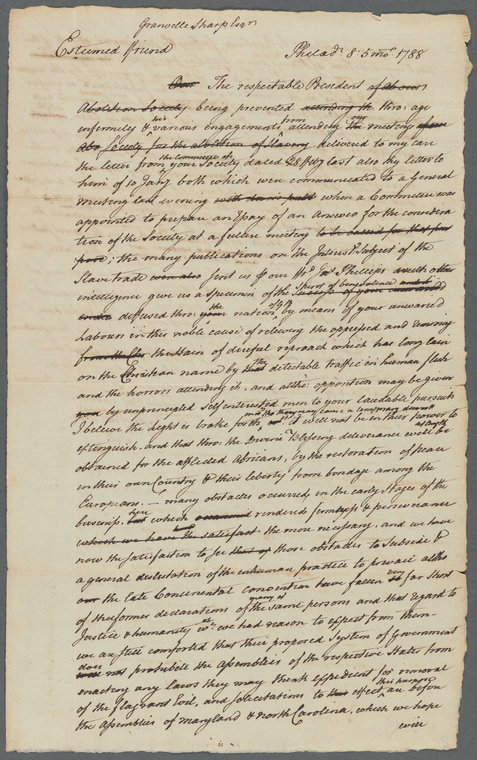 Granville Sharp Esqr.
Esteemed friend Philada. 8. 5 mo. 1788
Our The respectable President of above
Abolition Society being prevented attending the thro: age
infirmity & his various engagements from attending our meeting
Society for the abolition of Slavery delivered to my care
the letter from the Committee of your Society dated 28 last also thy letter to
him of 10 Jany. both which were communicated to a General
meeting last evening when a Committee was
appointed to prepare an Essay of an Answer for the considera
tion of the Society at a future meeting to be
; the many publications on the Interest: Subject of the
Slave trade sent us by our fd. Jas. Phillips with other
intelligence give us a specimen of the Spirit of benevolence
diffused thro: your the nation, by means of your unwearied
Labours in this noble cause of relieving the oppressed and removing
the Stain of direful reproach which has long lain
on the Christian name by that the detestable traffic in human flesh
and the horrors attending it. and altho: opposition may be given
by unprincipled Self interested men to your laudable pursuits
I believe the Light is broke forth, and tho they may cause a temporary it will not be in their power to
extinguish. and that thro: the Divine Blessing deliverance will at length be
obtained for the afflicted Africans, by the restoration of peace
in their own Country & their liberty from bondage among the
Europeans. — many obstacles occurred in the early stages of the
business, here but which rendered firmness & perseverance
which we have the satisfact: the more necessary, and we have
now the satisfaction to see that of those obstacles to Subside &
a general detestation of the inhuman practice to prevail altho
our the late Continental Convention have fallen very far Short
of the former declarations of many of the same persons and that regard to
Justice & humanity wch. we had reason to expect from them.
we are still comforted that their proposed System of Government
does not prohibit the Assemblies of the respective States from
enacting any laws they may think expedient for removal
of the flagrant Evil, and solicitations to this effect this purpose are before
the Assemblies of Maryland & North Carolina, which we hope
will